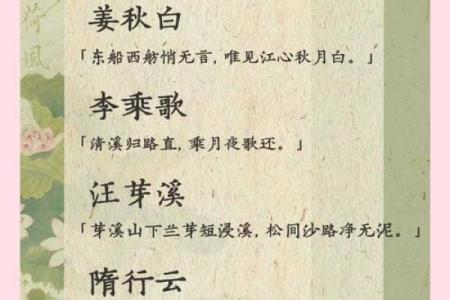 荷風
姜秋白
「东船西舫悄无言,唯见江心秋月白。」
李乘歌
「清溪归路直,乘月夜歌还。」
汪芽溪
「芽溪山下兰芽短浸溪,松间沙路净无泥。」
隋行云